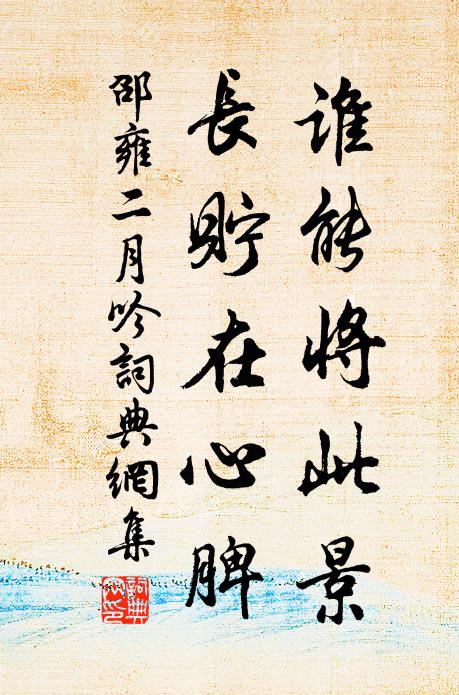 誰能將此景
長貯在心脾
邵雍二月吟詞典網集